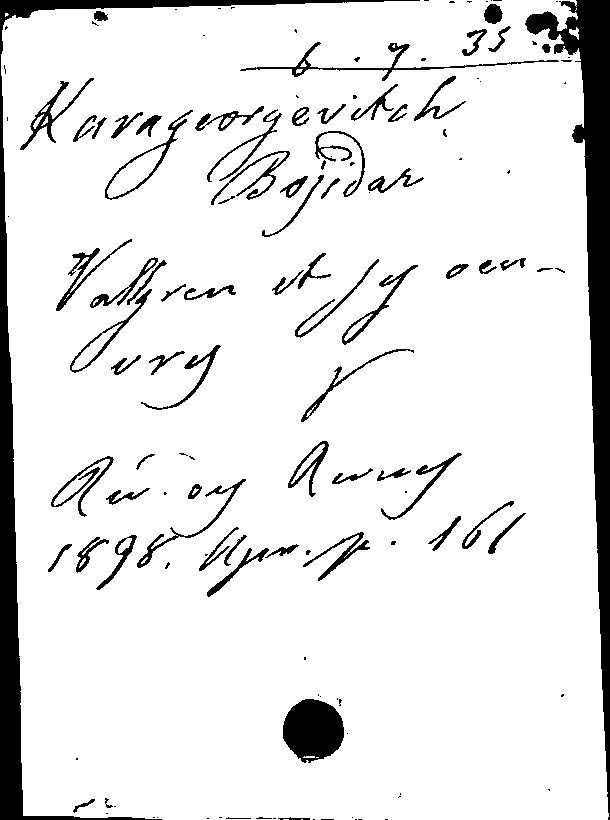 6. 7. 35
Karageorgevitch
Bojidar
Vallgren et ses oeu-
vres
Rev. des Revues
1898. p. 161